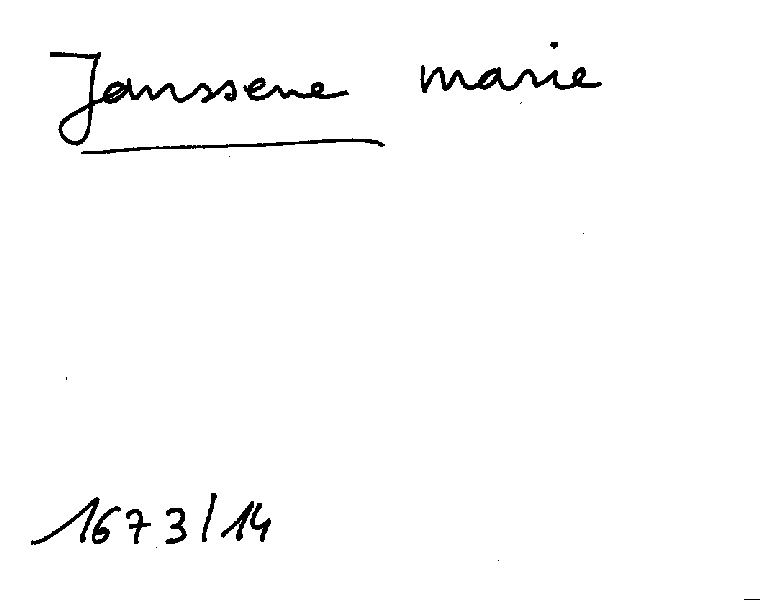 Janssene marie
1673/14